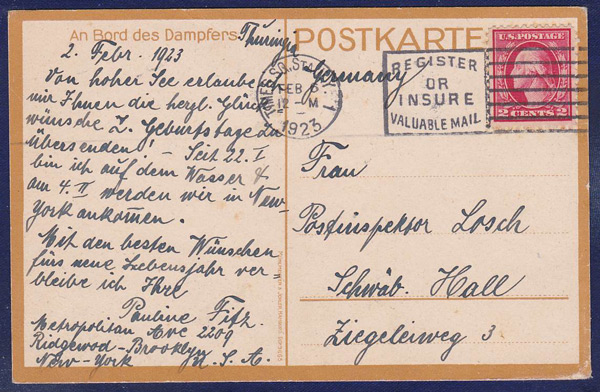 An Bord des Dampfers Thüringia
2. Febr. 1923
Von hoher See erlaube
mir Ihnen die hrzl. Glück
wünsche z. Geburtstage zu
übersenden! – Seit 22. I
bin ich auf dem Wasser &
am 4. II werden wir in New-
York ankommen.
Mit den besten Wünschen
fürs neue Lebensjahr ver-
bleibe ich Ihre
Pauline Fitz.
Metropolitan Ave 2209
Ridgewood-Brooklyn
New-York U. S. A.
POSTKARTE
Germany
TIMES SQ. STA.
FEB 6
12 M
1923
REGISTER
OR
INSURE
VALUABLE MAIL
U.S. POSTAGE
2 CENTS 2
Frau
Postinspektor Losch
Schwäb. Hall
Ziegeleiweg 3